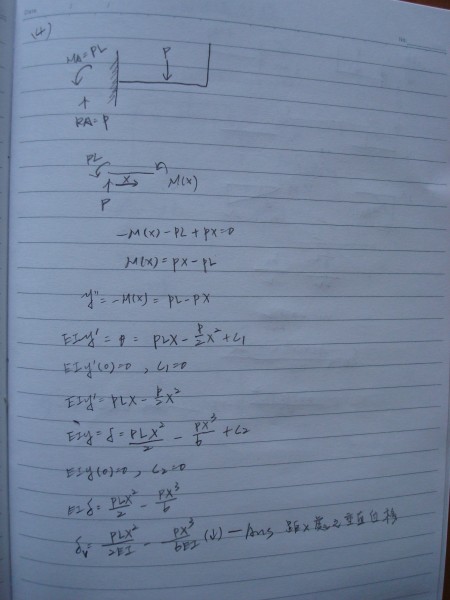 (4)
MA=PL
P
RA=P
PL
x
M(x)
P
-M(x)-PL+Px=0
M(x)=Px-PL
y"=-M(x)=PL-Px
EIy'=θ=PLx-P/2x²+C1
EIy'(0)=0, C1=0
EIy'=PLx-P/2x²
EIy=δ=PLx²/2-Px³/6+C2
EIy(0)=0, C2=0
EIδ=PLx²/2-Px³/6
δv=PLx²/2EI-Px³/6EI(↓)—Ans 距x處之垂直位移